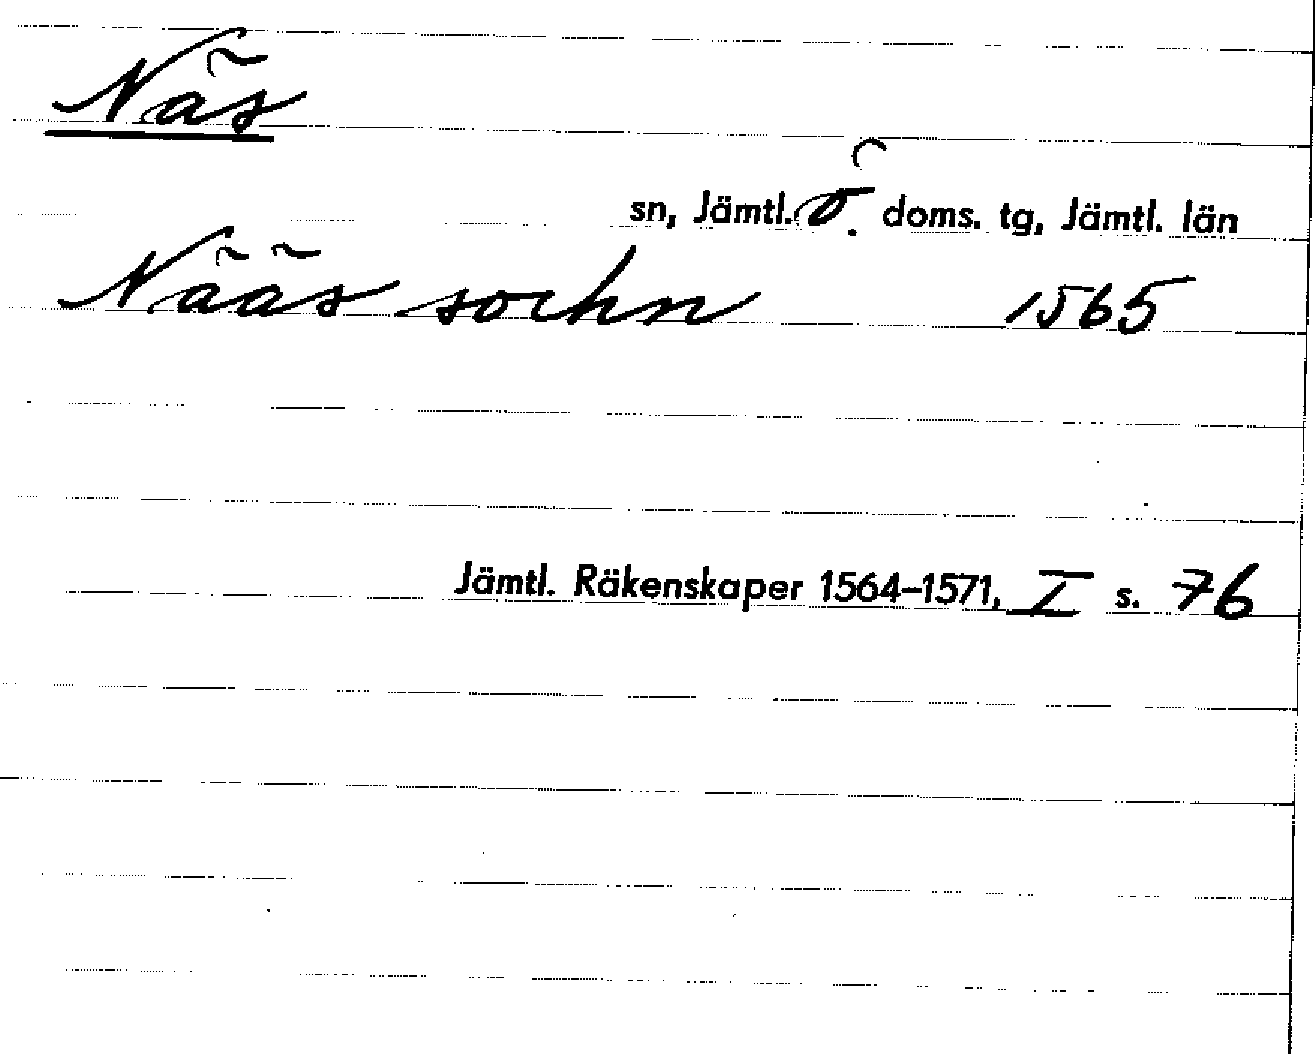 Näs
sn, Jämtl. ö. doms. tg, Jämtl. län
Nääs sochn 1565
Jämtl. Räkenskaper 1564–1571, I s. 76